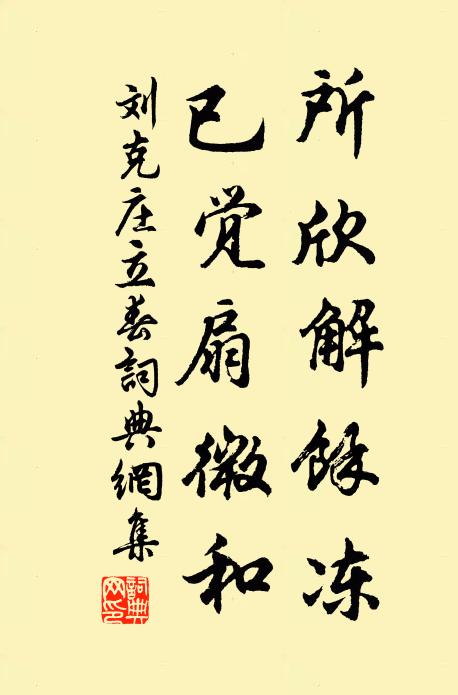 所欣解餘冻
已觉扇微和
刘克庄立春詞典網集
詞典网印